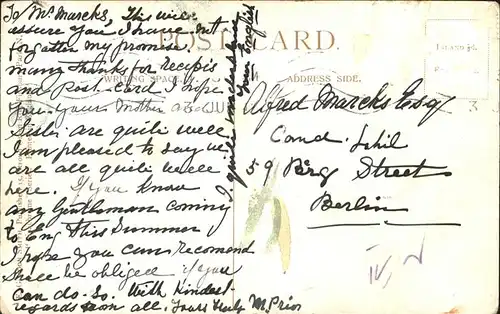 To Mr Marcks, This will
assure you I have not
forgotten my promise
many thanks for recipts
and Post card I hope
you your Mother and
Sister are quite well
I am pleased to say we
are all quite well
here. If you know
any Gentleman coming
to Eng This Summer
I hope you can recomend
Shall be obliged if you
can do so. With Kindest
regards from all. Yours M. Prior
I quite understand
your English
POST CARD.
WRITING SPACE.
ADDRESS SIDE.
Alfred Marcks Esq
Cand. phil
59 Burg Street
Berlin
INLAND ½d.
3
IV, 2